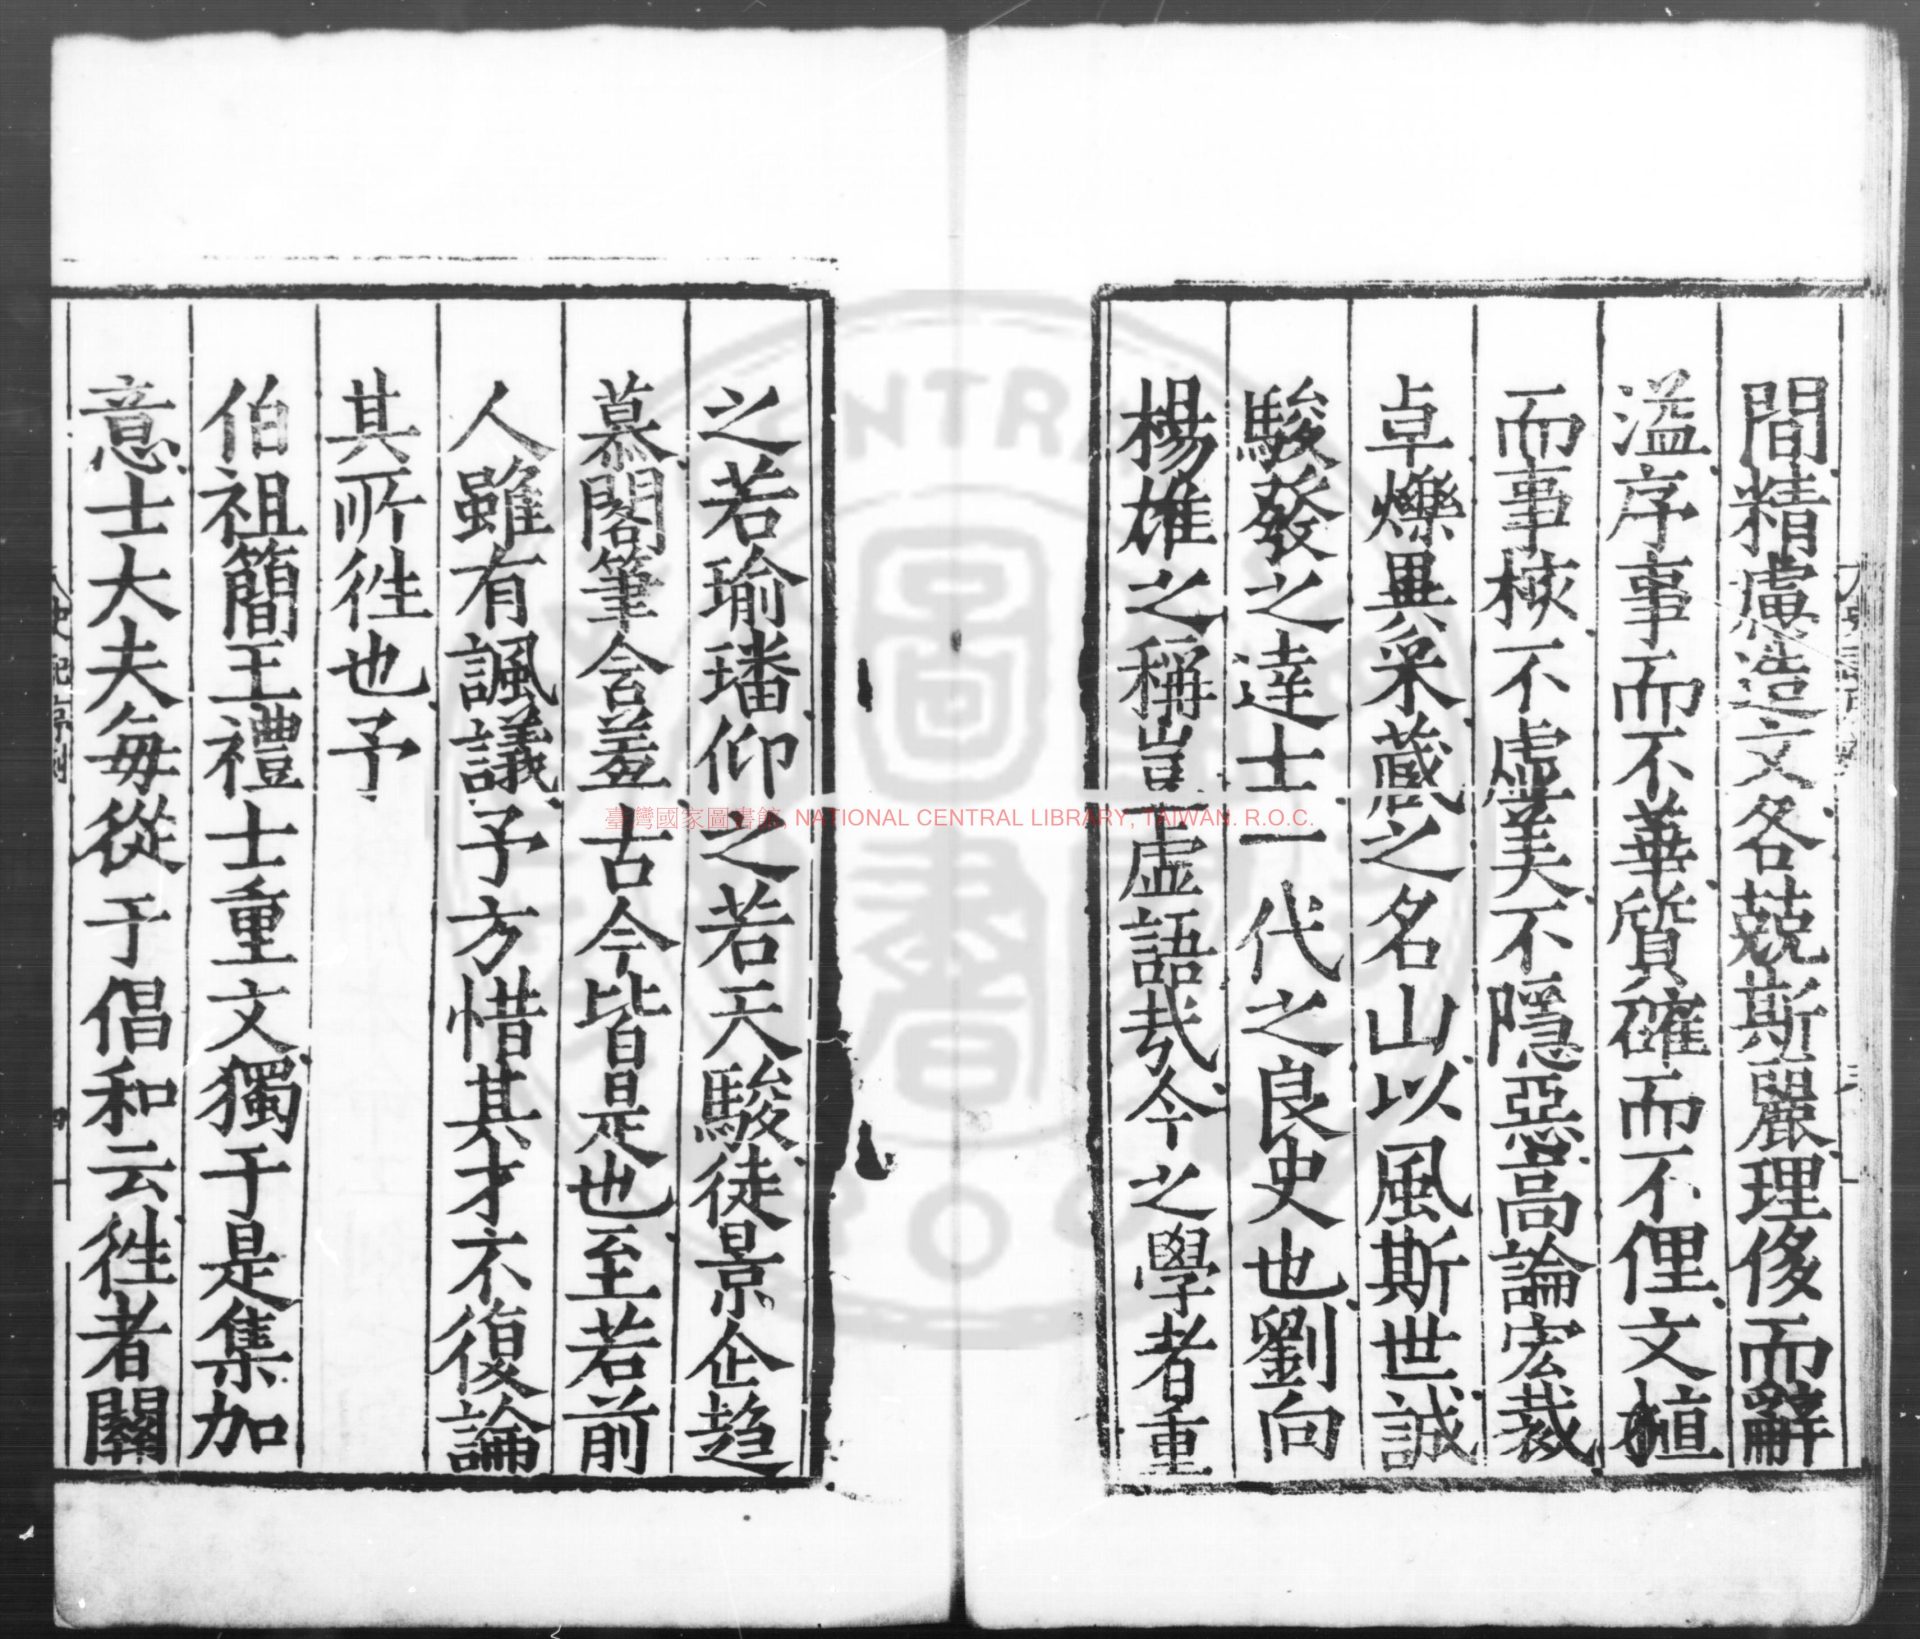 間精慮造文各兢斯嚴理侈而辭
溢序事而不華質確而不俚文植
而事核不虛美不隱惡高論宏裁
卓爍異采藏之名山以風斯世誠
駿發之達士一代之良史也劉向
楊雄之稱豈虛語哉今之學者重
之若瑜璠仰之若天駿徒景企趨
慕閣筆含羞古今皆是也至若前
人雖有諷議予方惜其才不復論
其所徃也予
伯祖簡王禮士重文獨于是集加
意士大夫每從于倡和云徃者關
臺灣國家圖書館, NATIONAL CENTRAL LIBRARY, TAIWAN. R.O.C.